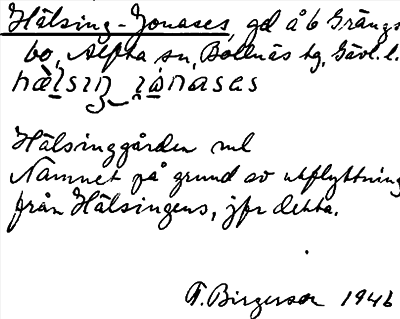 Hälsing-Jonases, gd å 6 Grängs
bo, Alfta sn, Bollnäs tg, Gävl. l.
hälsiŋ jónases
Hälsinggården ml
Namnet på grund av utflyttning
från Hälsingens, jfr detta.
F. Birgersson 1946